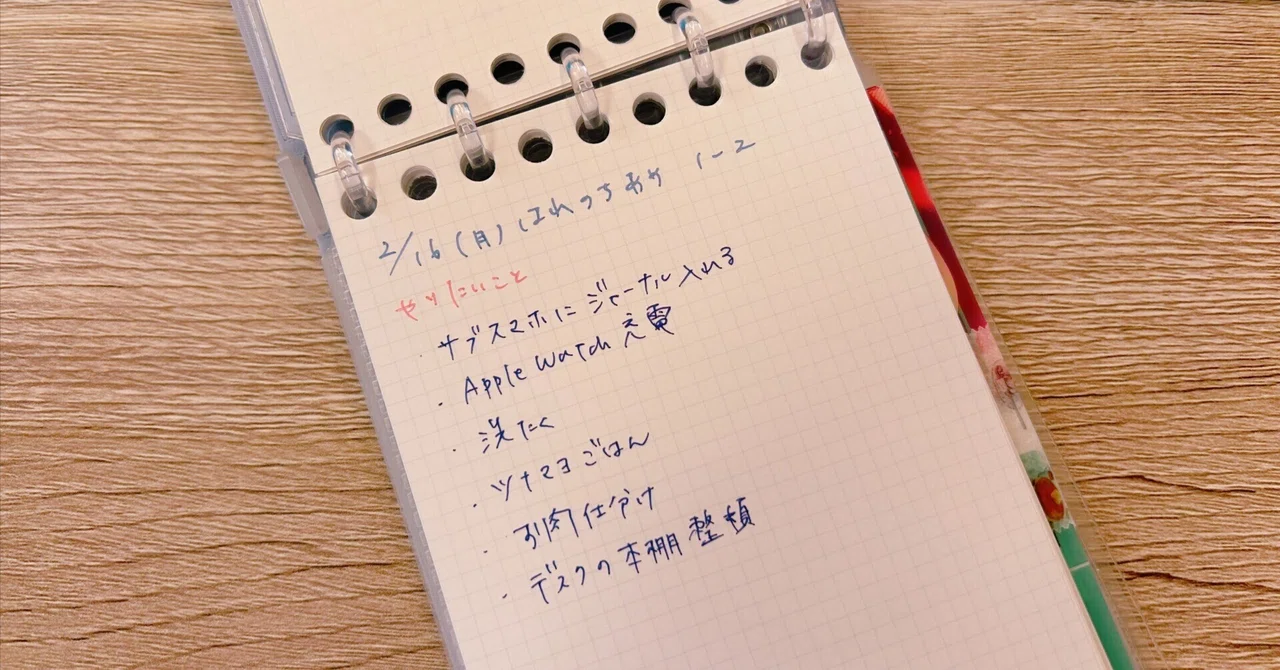 2/16(月)はれのちあめ 1-2
やりたいこと
・サブスマホにジャーナル入れる
・Apple Watch 充電
・洗たく
・ツナマヨごはん
・引肉仕分け
・デスクの本棚整頓